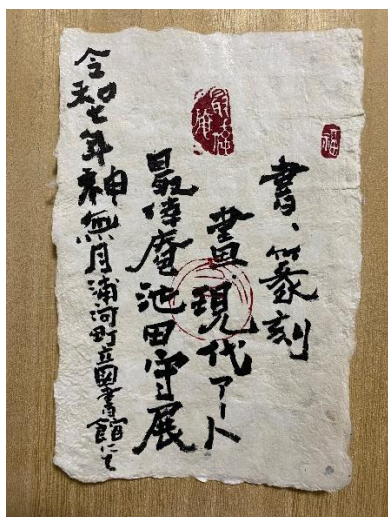 書、篆刻
畫、現代アート
最倖庵池田守展
令和七年神無月浦河町立図書館にて
福
最倖庵